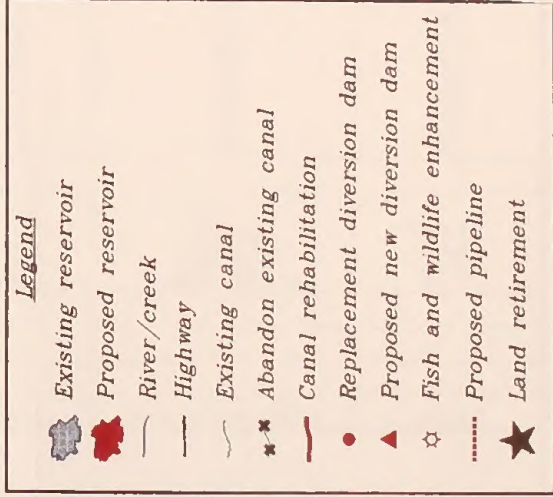 Legend
Existing reservoir
Proposed reservoir
River/creek
Highway
Existing canal
Abandon existing canal
Canal rehabilitation
Replacement diversion dam
Proposed new diversion dam
Fish and wildlife enhancement
Proposed pipeline
Land retirement